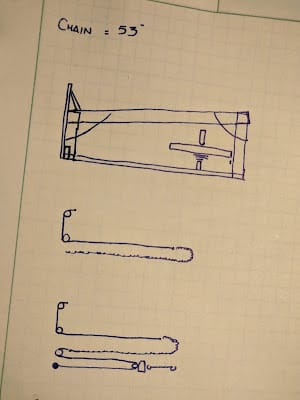 CHAIN = 53"